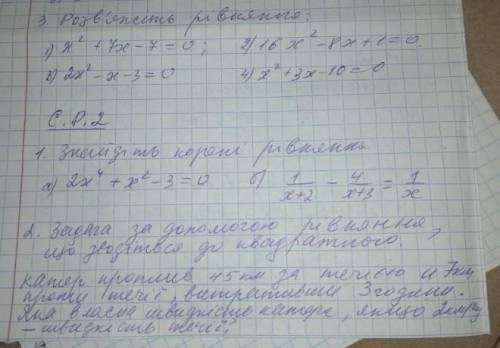 3. Розв'яжіть рівняння:
1) x² + 7x - 7 = 0; 2) 16x² - 8x + 1 = 0.
3) 2x² - x - 3 = 0 4) x² + 3x - 10 = 0
С.Р.2
1. Знайдіть корені рівняння
а) 2x⁴ + x² - 3 = 0 б) 1/(x+2) - 4/(x+3) = 1/x
2. Задача за допомогою рівняння,
що зводиться до квадратного.
Катер проплив 45км за течією и 7км
проти течії, витративши 3години.
Яка власна швидкість катера, якщо 2км/год
- швидкість течії,